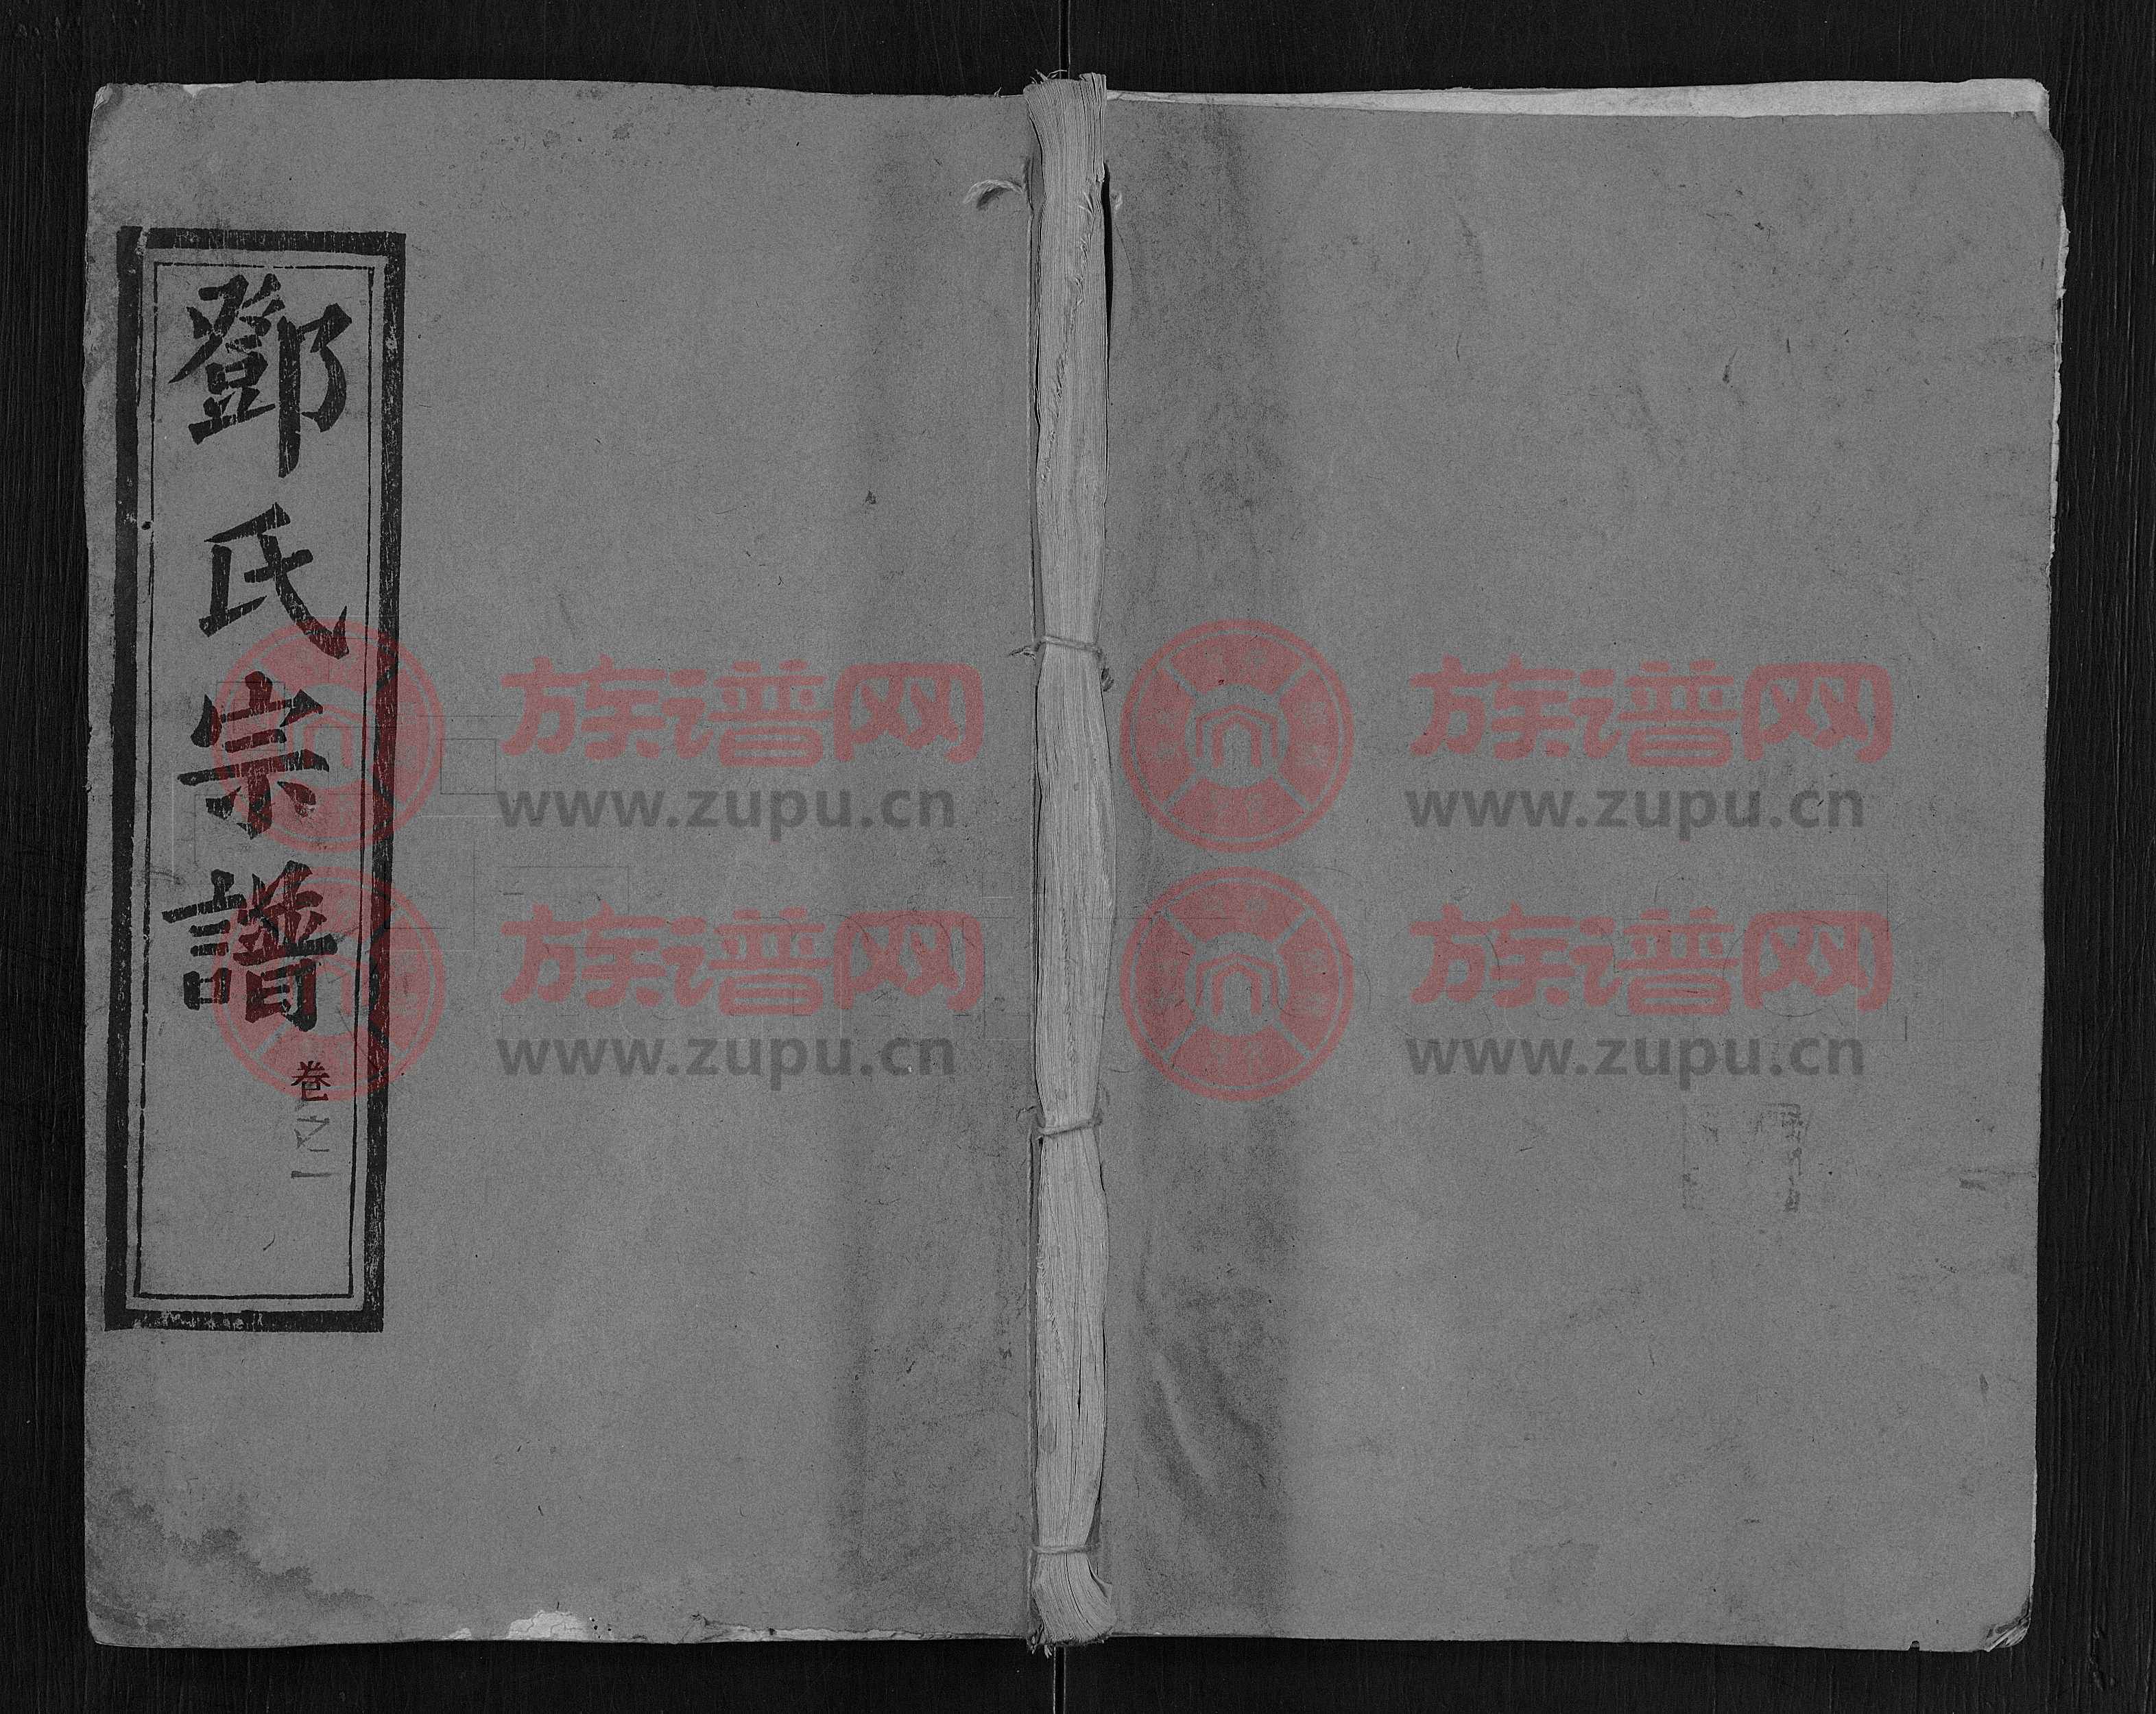 鄧氏宗譜
卷之一
族谱网
www.zupu.cn
族谱网
www.zupu.cn
族谱网
www.zupu.cn
族谱网
www.zupu.cn